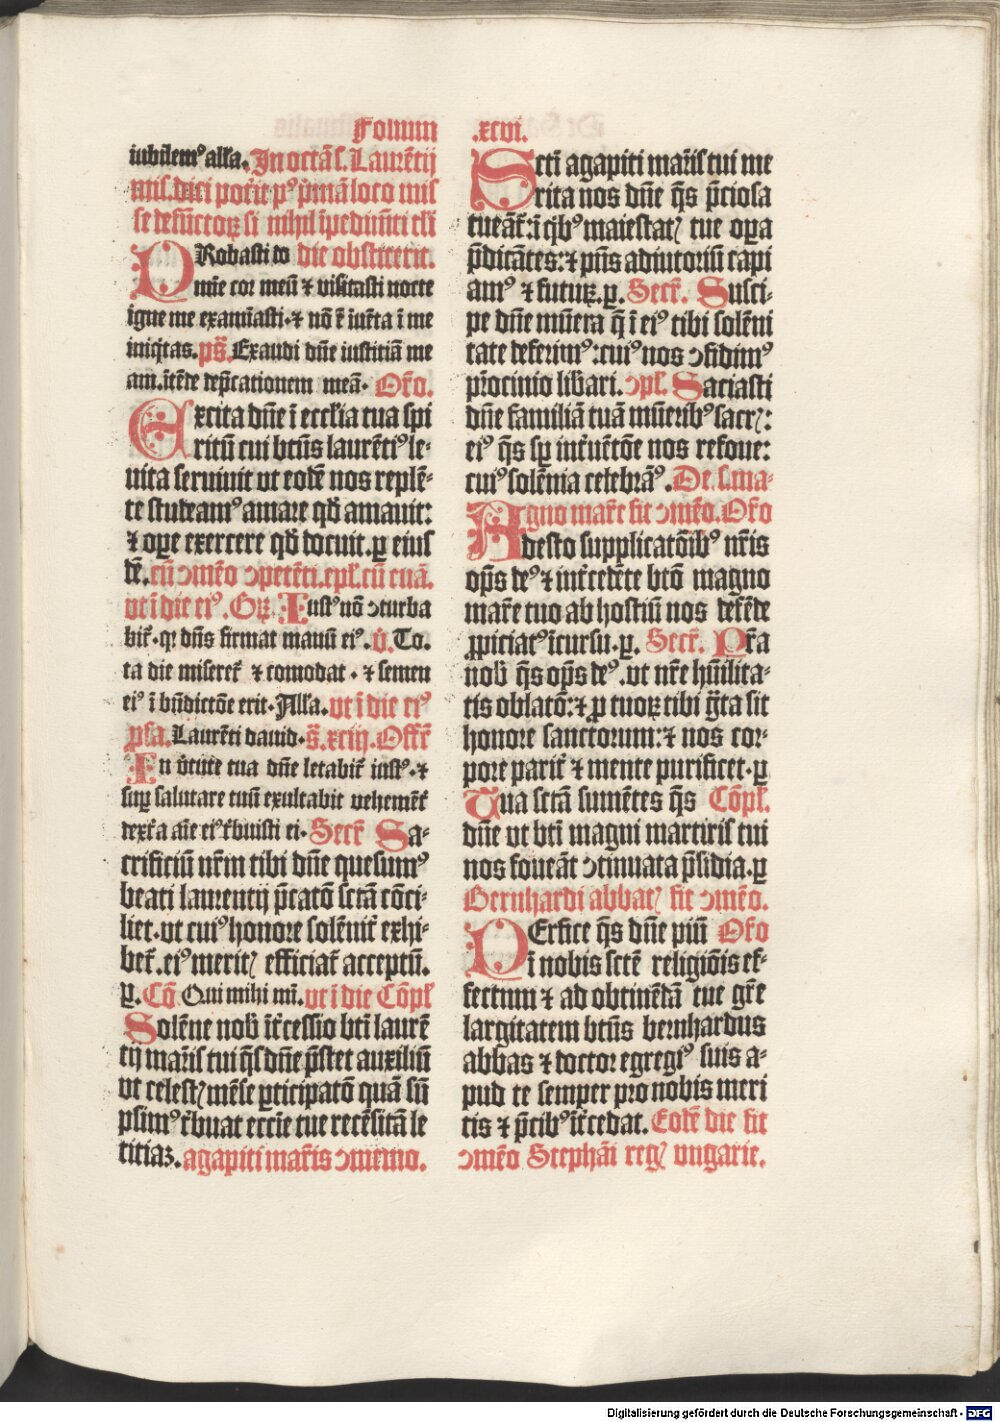 Folium .xcvi.
iubilem⁹ alľa. In octās. Laurētij
m̄is. dici potͥe p⁹ ṗmā loco mis
se defūctoꝝ si nihil īpedimēti eľi
PRobasti do die obstiterit.
mīe coꝛ meū ⁊ visitasti nocte
igne me examīasti·⁊ nō ē iuēta ī me
iniq̇tas. ps̄. Exaudi dn̄e iustitiā me
am.ītēde dep̄cationem meā. Or̄o.
Excita dn̄e ī ecclīa tua spi
ritū cui btūs laurēti⁹ le-
uita seruiuit vt eodē nos replē-
te studeam⁹ amare qḋ amauit:
⁊ oꝑe exercere qḋ docuit. ꝑ eius
dē. cū ꝯmēo ꝯpetēti.epľ.cū euā.
vt ī die ei⁹. Grͣ. Iust⁹ nō ꝯturba
bit̄·qꝛ dn̄s firmat manū ei⁹. v̇. To.
ta die miseret̄ ⁊ comodat·⁊ semen
ei⁹ ī bn̄dictōe erit· Alľa. vt ī die ei⁹
ꝓsa. Laurēti dauid·s̄.xciij. Offr̄
In v̇tute tua dn̄e letabit̄ iust⁹.⁊
suꝑ salutare tuū exultabit vehemēt̄
dext̄a aīe ei⁹ tͥbuisti ei· Secr̄ Sa-
crificiū nr̄m tibi dn̄e quesum⁹
beati laurentij p̄catō sctā cōci-
liet·vt cui⁹ honore solēnit̄ exhi-
bet̄.ei⁹ meritꝭ efficiat̄ acceptū.
ꝑ. Cō Qui mihi mī. vt ī die Cōpľ
Solēne nob̄ īt̄cessio btī laurē
tij mar̄is tui q̄s dn̄e p̄stet auxiliū
vt celestꝭ mēse ꝑticipatō quā sū
psim⁹ tͥbuat eccīe tue recēsitā le
titiaꝫ. agapiti mar̄is ꝯmemo.
Scti agapiti mar̄is tui me
rita nos dn̄e q̄s p̄ciosa
tueāt̄:ī q̇b⁹ maiestatꝭ tue oꝑa
p̄dicātes:⁊ pn̄s adiutoriū capi
am⁹ ⁊ futuꝝ.ꝑ. Secr̄. Susci-
pe dn̄e mūera q̄ ī ei⁹ tibi solēni
tate deferim⁹:cui⁹ nos ꝯfidim⁹
pr̄ocinio libari. ꝯpľ. Saciasti
dn̄e familiā tuā mūerib⁹ sacrꝭ:
ei⁹ q̄s sꝑ int̄uētōe nos refoue:
cui⁹ solēnia celebrā⁹. De s.ma-
gno mar̄e fit ꝯmēo. Or̄o
Adesto supplicatōib⁹ nr̄is
oṗs de⁹ ⁊ int̄cedēte btō magno
mar̄e tuo ab hostiū nos defēde
ꝓpiciat⁹ īcursu.ꝑ. Secr̄. Pr̄a
nob̄ q̄s oṗs de⁹.vt nr̄e hūilita-
tis oblatō:⁊ ꝓ tuoꝝ tibi g̈ta sit
honore sanctorum:⁊ nos cor-
pore parit̄ ⁊ mente purificet·ꝑ
Una sctā sumētes q̄s Cōpľ.
dn̄e vt btī magni martiris tui
nos foueāt ꝯtinuata p̄sidia.ꝑ
Bernhardi abbatꝭ fit ꝯmēo.
PErfice q̄s dn̄e piū Or̄o
ī nobis sctē religiōis ef-
fectum ⁊ ad obtinēdā tue gr̄e
largitatem btūs bernhardus
abbas ⁊ doctor egregi⁹ suis a-
pud te semper pro nobis meri
tis ⁊ p̄cib⁹ īt̄cedat. Eodē die fit
ꝯmēo Stephāi regꝭ vngarie.
Digitalisierung gefördert durch die Deutsche Forschungsgemeinschaft - DFG